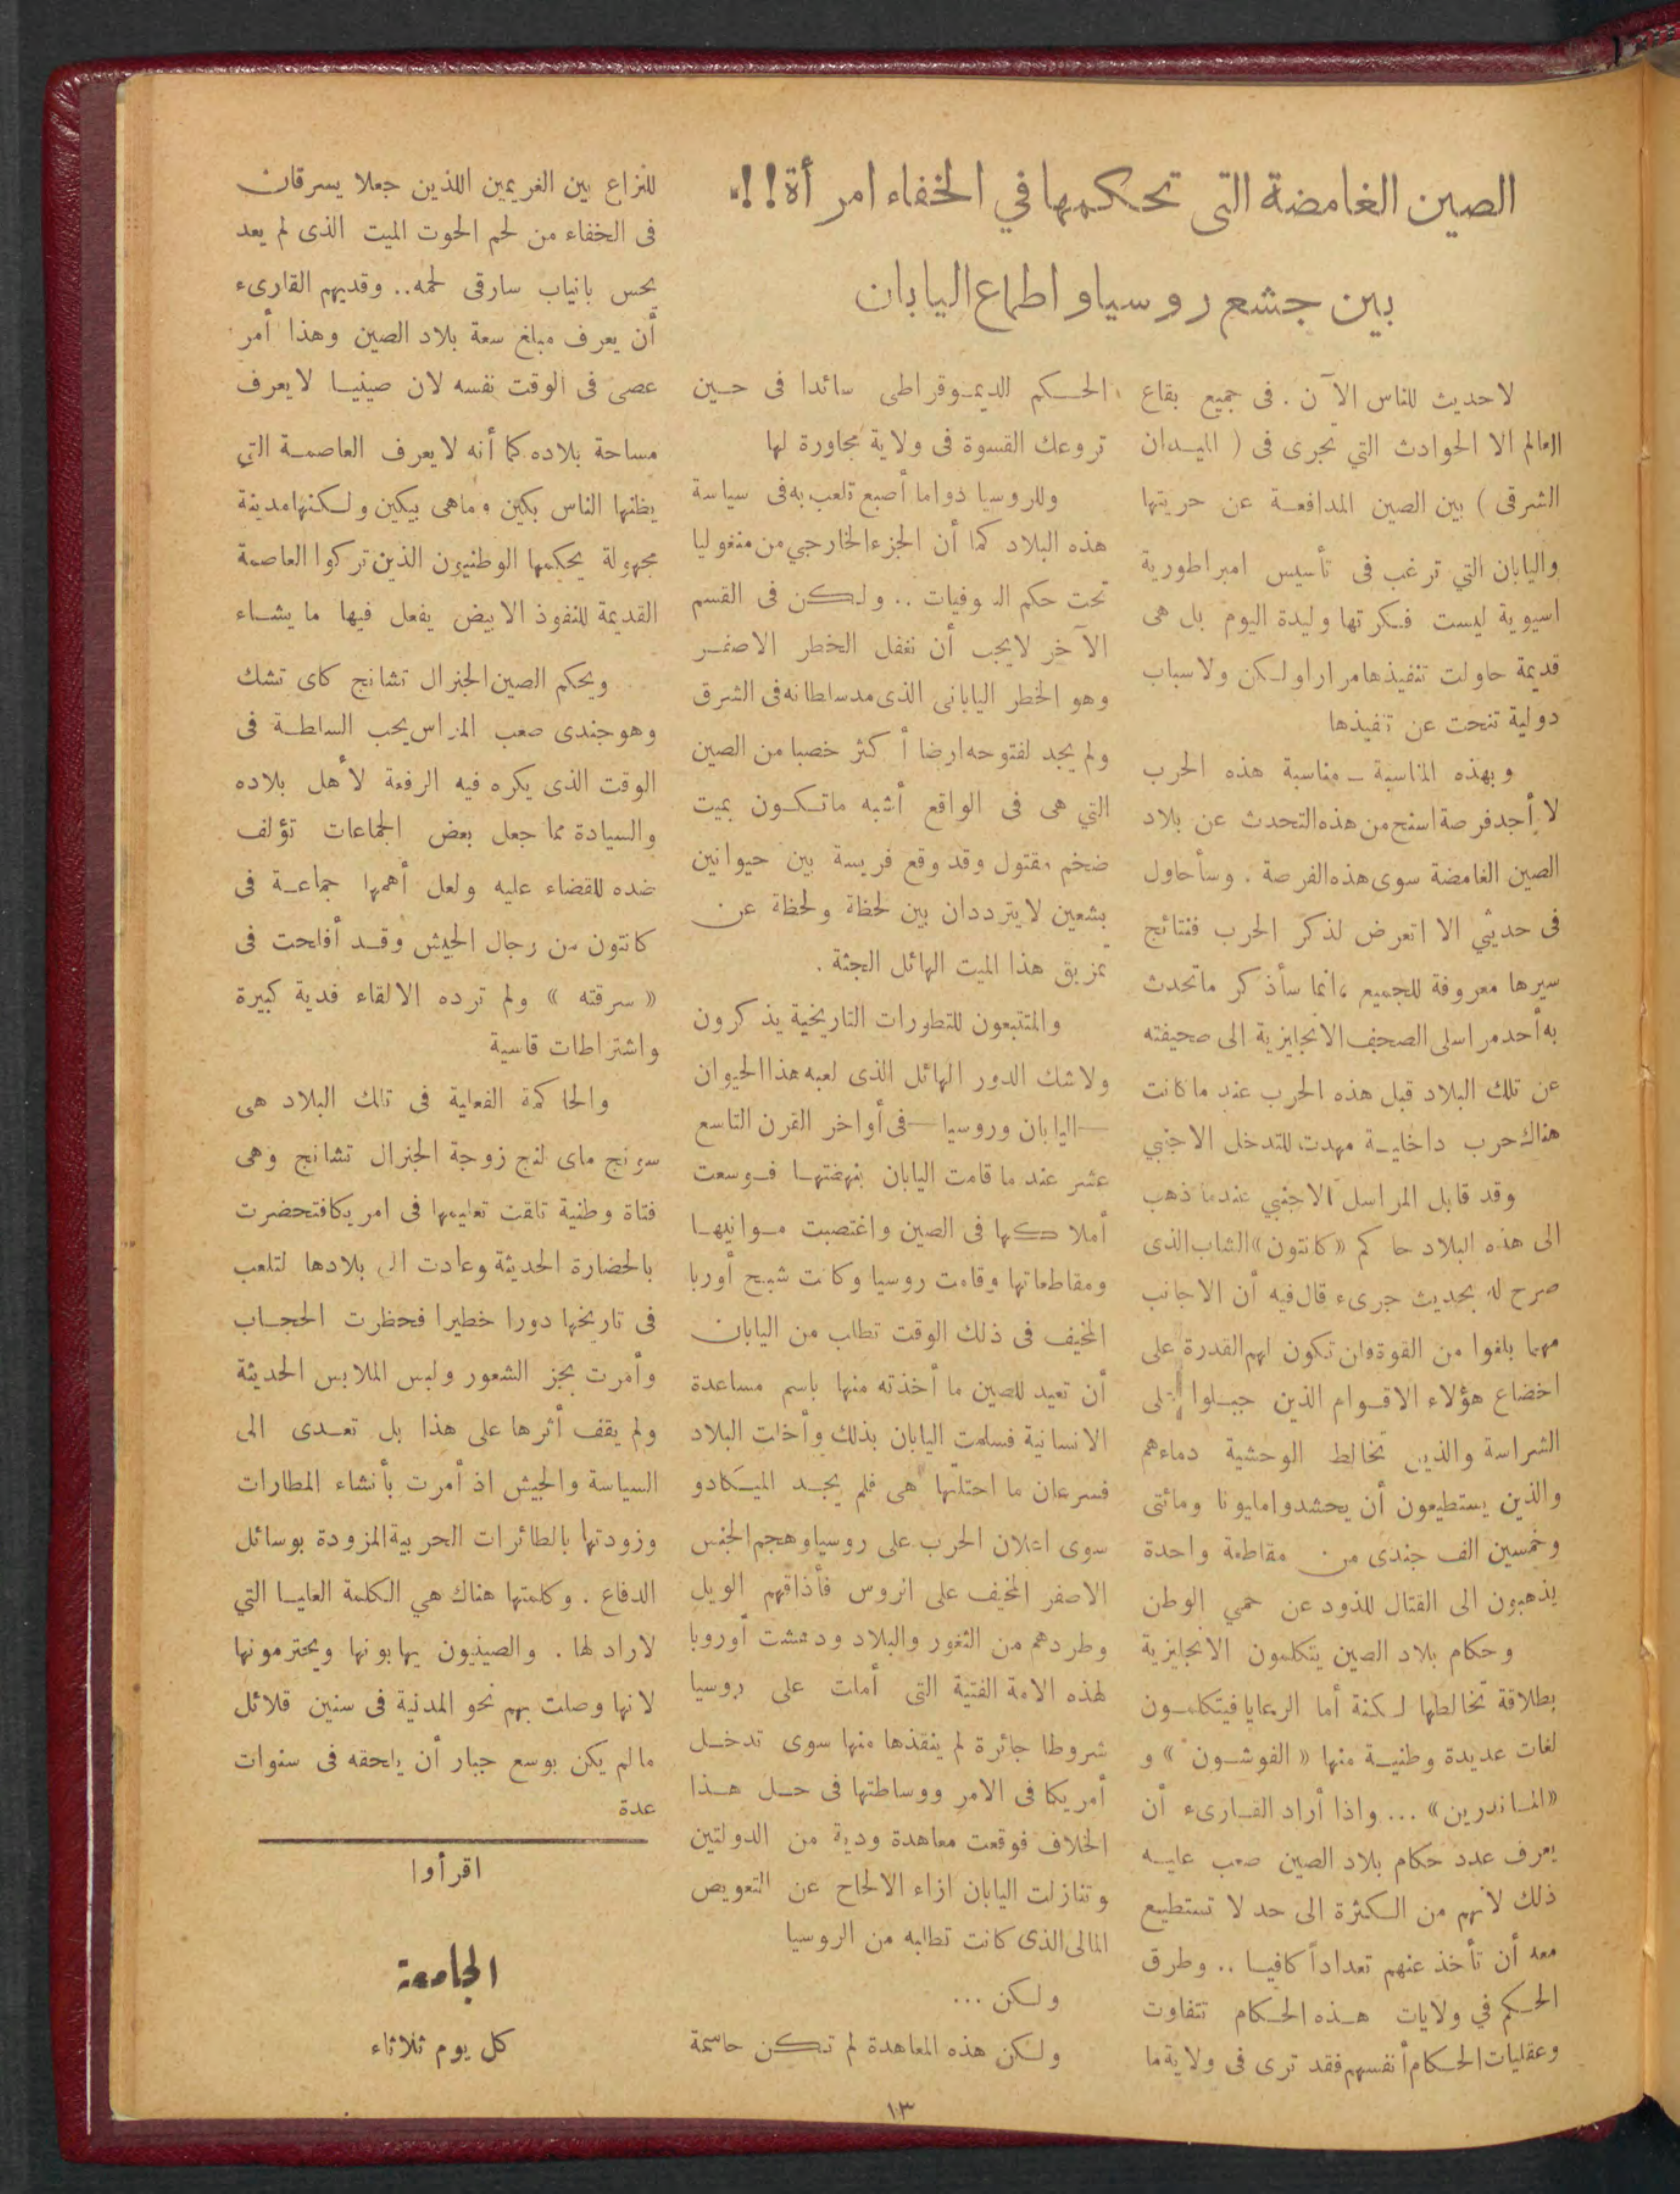 الصين الغامضة التى تحكمها في الخفاء امرأة!!
بين جشع روسيا واطماع اليابان
لا حديث للناس الآن . فى جميع بقاع
العالم الا الحوادث التي تجرى فى ( الميدان
الشرقى ) بين الصين المدافعة عن حريتها
واليابان التي ترغب فى تأسيس امبراطورية
اسيوية ليست فكرتها وليدة اليوم بل هى
قديمة حاولت تنفيذها مرارا ولكن ولاسباب
دولية تنحت عن تنفيذها
وبهذه المناسبة ــ مناسبة هذه الحرب
لا أجد فرصة اسنح من هذه التحدث عن بلاد
الصين الغامضة سوى هذه الفرصة . وسأحاول
فى حديثي الا اتعرض لذكر الحرب فنتائج
سيرها معروفة للجميع ، انما سأذكر ماتحدث
به أحد مراسلى الصحف الانجليزية الى صحيفته
عن تلك البلاد قبل هذه الحرب عند ما كانت
هناك حرب داخلية مهدت للتدخل الاجنبي
وقد قابل المراسل الاجنبي عندما ذهب
الى هذه البلاد حاكم «كانتون» الشاب الذى
صرح له بحديث جرىء قال فيه أن الاجانب
مهما بلغوا من القوة فلن تكون لهم القدرة على
اخضاع هؤلاء الاقوام الذين جبلوا على
الشراسة والذين تخالط الوحشية دماءهم
والذين يستطيعون أن يحشدوا مليونا ومائتى
وخمسين الف جندى من مقاطعة واحدة
يذهبون الى القتال للذود عن حمي الوطن
وحكام بلاد الصين يتكلمون الانجليزية
بطلاقة تخالطها لكنة أما الرعايا فيتكلمون
لغات عديدة وطنية منها « الفوشون » و
«الماندرين» ... واذا أراد القارىء أن
يعرف عدد حكام بلاد الصين صعب عليه
ذلك لأنهم من الكثرة الى حد لا تستطيع
معه أن تأخذ عنهم تعداداً كافيا .. وطرق
الحكم في ولايات هذه الحكام تتفاوت
وعقليات الحكام أنفسهم فقد ترى فى ولاية ما
الحكم الديموقراطى سائدا فى حين
تروعك القسوة فى ولاية مجاورة لها
وللروسيا دواما أصبع تلعب به فى سياسة
هذه البلاد كما أن الجزء الخارجي من منغوليا
تحت حكم .. ولكن فى القسم
الآخر لا يجب أن نغفل الخطر الاصفر
وهو الخطر اليابانى الذى مد سلطانه فى الشرق
ولم يجد لفتوحه ارضا أكثر خصبا من الصين
التي هى فى الواقع أشبه ماتكون بميت
ضخم مقتول وقد وقع فريسة بين حيوانين
بشعين لا يترددان بين لحظة ولحظة عن
تمزيق هذا الميت الهائل الجثة .
والمتتبعون للتطورات التاريخية يذكرون
ولاشك الدور الهائل الذى لعبه هذا الحيوان
—اليابان وروسيا—فى أواخر القرن التاسع
عشر عند ما قامت اليابان بنهضتها فوسعت
أملاكها فى الصين واغتصبت موانيها
ومقاطعاتها وقامت روسيا وكانت شبح أوربا
المخيف فى ذلك الوقت تطلب من اليابان
أن تعيد للصين ما أخذته منها باسم مساعدة
الانسانية فسلمت اليابان بذلك وأخلت البلاد
فسرعان ما احتلتها هى فلم يجد الميكادو
سوى اعلان الحرب على روسيا وهجم الجنس
الاصفر المخيف على الروس فأذاقهم الويل
وطردهم من الثغور والبلاد ودهشت أوروبا
لهذه الامة الفتية التى أملت على روسيا
شروطا جائرة لم ينقذها منها سوى تدخل
أمريكا فى الامر ووساطتها فى حل هذا
الخلاف فوقعت معاهدة ودية من الدولتين
وتنازلت اليابان ازاء الالحاح عن التعويض
المالى الذى كانت تطالبه من الروسيا
ولكن ...
ولكن هذه المعاهدة لم تكن حاسمة
للنزاع بين الغريمين اللذين جعلا يسرقان
فى الخفاء من لحم الحوت الميت الذى لم يعد
يحس بانياب سارقى لحمه.. وقد يهم القارىء
أن يعرف مبلغ سعة بلاد الصين وهذا أمر
عصى فى الوقت نفسه لان صينيا لا يعرف
مساحة بلاده كما أنه لا يعرف العاصمة التي
يظنها الناس بكين وماهى ببكين ولكنها مدينة
مجهولة يحكمها الوطنيون الذين تركوا العاصمة
القديمة للنفوذ الابيض يفعل فيها ما يشاء
ويحكم الصين الجنرال تشانج كاى تشك
وهو جندى صعب المراس يحب السلطة فى
الوقت الذى يكره فيه الرفعة لأهل بلاده
والسيادة مما جعل بعض الجماعات تؤلف
ضده للقضاء عليه ولعل أهمها جماعة فى
كانتون من رجال الجيش وقد أفلحت فى
« سرقته » ولم ترده الا لقاء فدية كبيرة
واشتراطات قاسية
والحاكمة الفعلية فى تلك البلاد هى
سونج ماى لنج زوجة الجنرال تشانج وهى
فتاة وطنية تلقت تعليمها فى امريكا فتحضرت
بالحضارة الحديثة وعادت الى بلادها لتلعب
فى تاريخها دورا خطيرا فحظرت الحجاب
وأمرت بجز الشعور ولبس الملابس الحديثة
ولم يقف أثرها على هذا بل تعدى الى
السياسة والجيش اذ أمرت بأنشاء المطارات
وزودتها بالطائرات الحربية المزودة بوسائل
الدفاع . وكلمتها هناك هي الكلمة العليا التي
لاراد لها . والصينيون يهابونها ويحترمونها
لانها وصلت بهم نحو المدنية فى سنين قلائل
مالم يكن بوسع جبار أن يلحقه فى سنوات
عدة
اقرأوا
الجامعة
كل يوم ثلاثاء
١٣